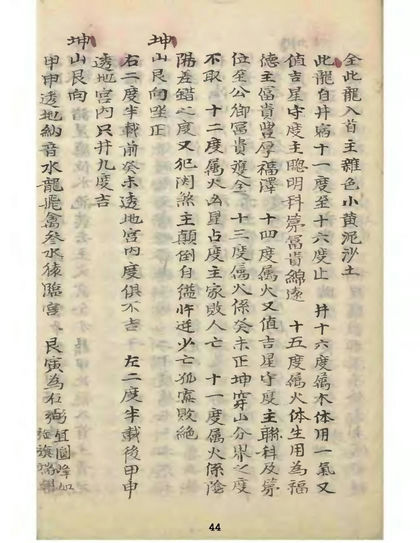 全此龍入首主雜色小黃泥沙土
此龍自井宿十一度至十六度止 井十六度属木体用一氣又
值吉星守度主聰明科第冨貴綿遠 十五度属火体生用為福
德主冨貴豐厚福澤 十四度属火又值吉星守度主聯科及第
位至公卿冨貴雙全 十三度属火係癸未正坤穿山分界之度
不取 十二度属火凶星占度主家敗人亡 十一度属火係陰
陽差錯之度又犯関煞主顛倒自縊少亡孤寡敗絶
坤山艮向坐正
右二度半載前癸未透地宮内度俱不吉 左二度半載後甲申
透地宮内只井九度吉
坤山艮向
甲申透地納音水龍飛禽参水猿臨宮 艮寅為石
44